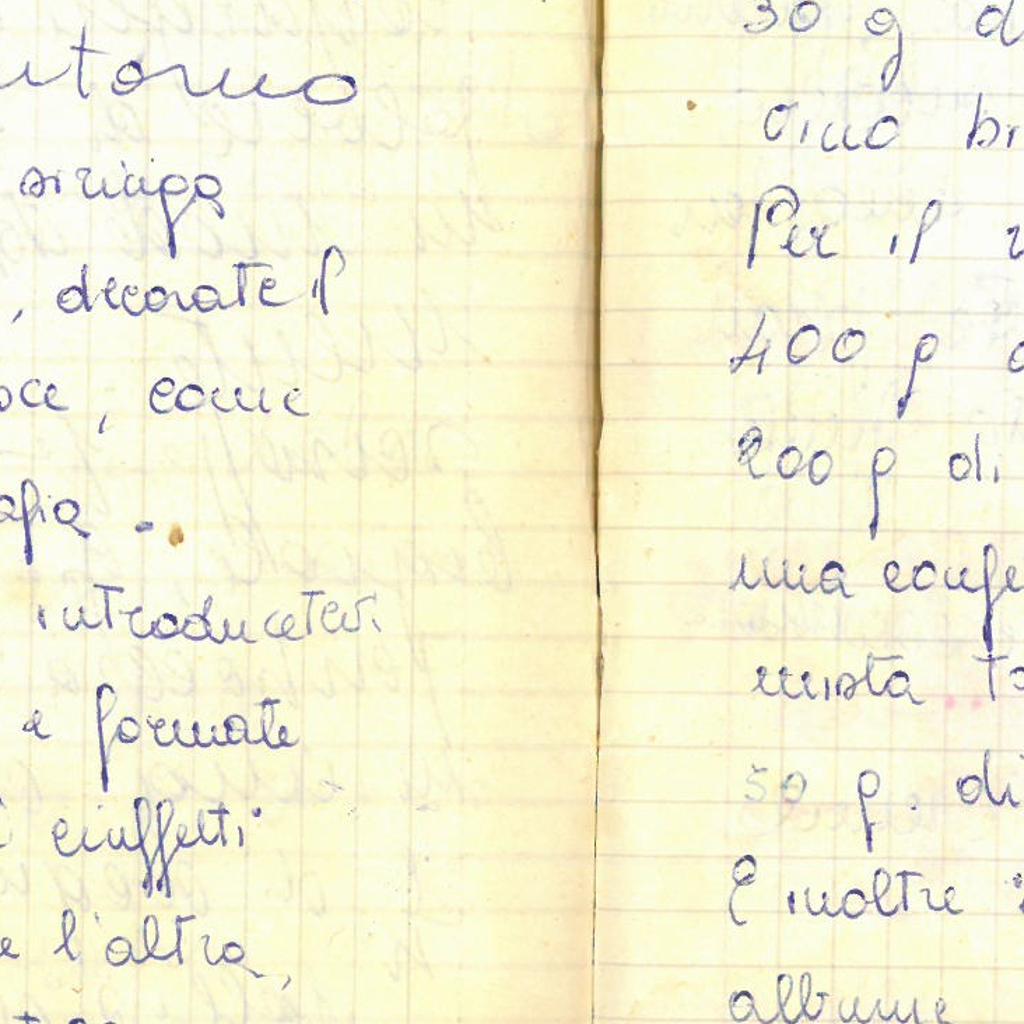 siringa
, decorate il
, come
introducetevi
e formate
ciuffetti
e l'altra,
30 g d
vino bi
Per il r
400 g d
200 g di
una confe
mista to
50 g. di
E inoltre :
albume